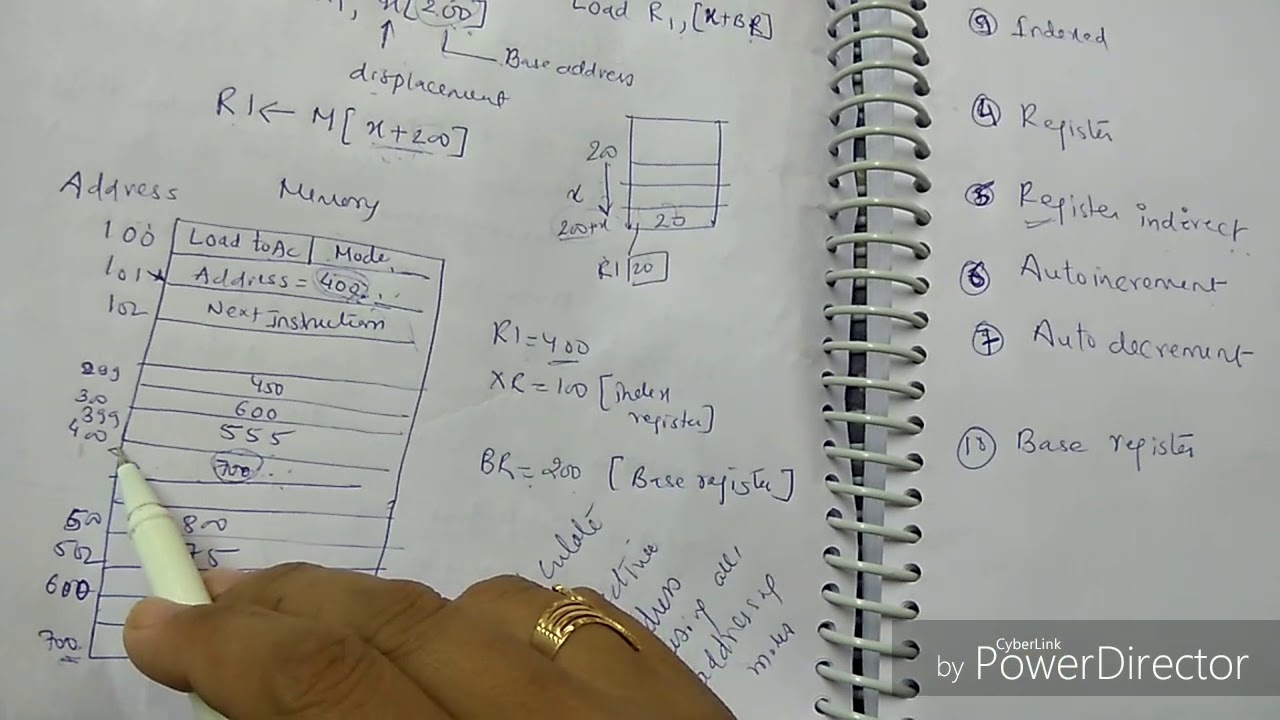 x[200]
Load R1, [x+BR]
Base address
displacement
R1 ← M[x+200]
200
x
200+x
20
R1 20
Address Memory
100 Load to AC Mode
101 Address = 400
102 Next Instruction
299 450
300 600
399 555
400 700
500 800
502 75
600
700
R1=400
XR=100 [index register]
BR=200 [Base register]
using all
addressing
modes
9 Indexed
4 Register
5 Register indirect
6 Autoincrement
7 Auto decrement
10 Base register
CyberLink
by PowerDirector